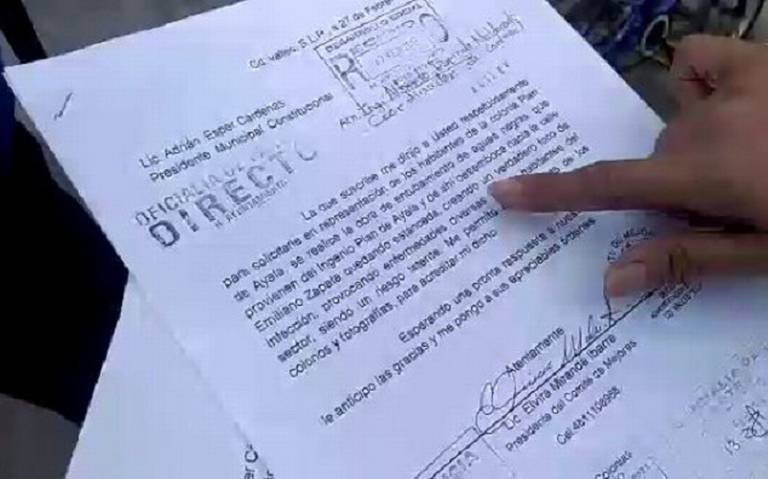 Cd. Valles, S.L.P., a 27 de Febrero
DESARROLLO SOCIAL
Lic. Adrián Esper Cárdenas
Presidente Municipal Constitucional
OFICIALIA DE
DIRECTO
H. AYUNTAMIENTO
La que suscribe me dirijo a Usted respetuosamente
para solicitarle en representación de los habitantes de la colonia Plan
de Ayala, se realice la obra de entubamiento de aguas negras, que
provienen del Ingenio Plan de Ayala y de ahí desemboca hacia la calle
Emiliano Zapata quedando estancada, creando un verdadero foco de
infección, provocando enfermedades diversas habitantes del
sector, siendo un riesgo latente. Me permito de los
colonos y fotografías, para acreditar mi dicho.
Esperando una pronta respuesta a
le anticipo las gracias y me pongo a sus apreciables órdenes
Atentamente
Lic. Elvira Miranda Ibarra
Presidente del Comité de Mejoras
Cel.